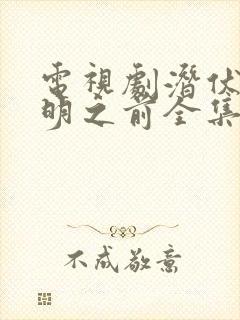 電視劇潛伏
明之前全集
不成敬意